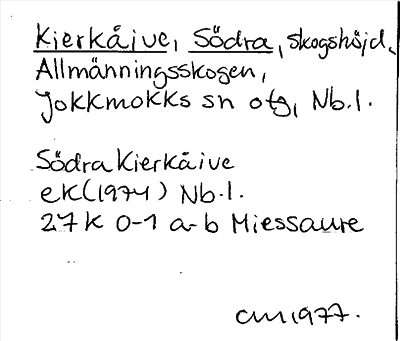 Kierkåive, Södra, skogshöjd,
Allmänningsskogen,
Jokkmokks sn ofg, Nb.l.
Södra Kierkåive
ek (1974) Nb.l.
27 K 0-1 a-b Miessaure
cm 1977.